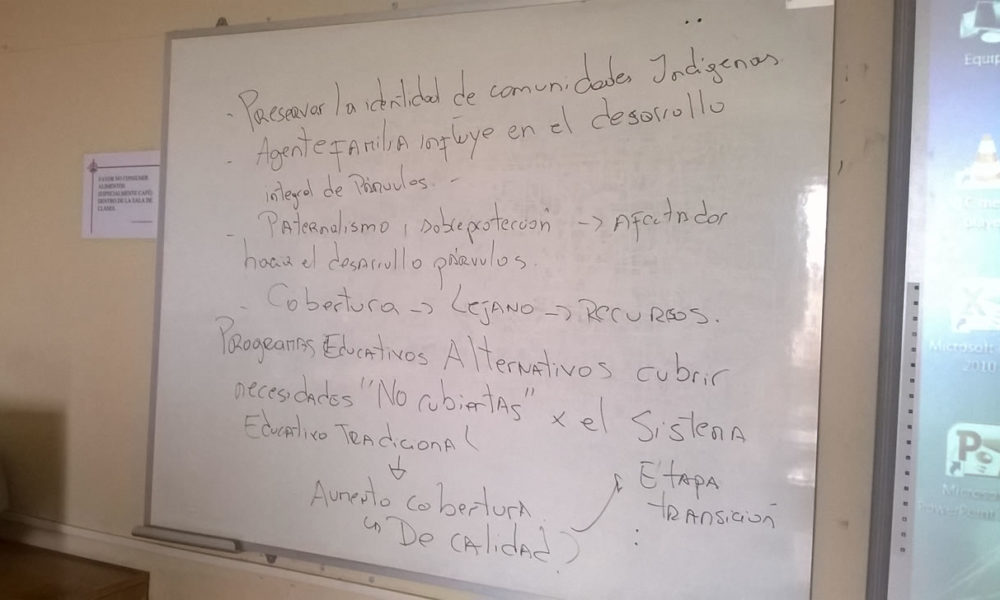 - Preservar la identidad de comunidades Indigenas
- Agente FAMILIA influye en el desarrollo
integral de Párvulos. -
- PATernalismo, sobreprotección -> AFectador
hacia el desarrollo párvulos.
- Cobertura -> LEJANO -> RECURSOS.
PROGRAMAS EDUCATIVOS ALTERNATIVOS cubrir
necesidades "No cubiertas" x el SISTEMA
EDUCATIVO TRADICIONAL
↓
Aumento cobertura
↳ De calidad)
↗ ETAPA
TRANSICIÓN
:
FAVOR NO CONSUMIR
ALIMENTOS
(ESPECIALMENTE CAFÉ)
DENTRO DE LA SALA DE
CLASES.
Equip
Microsoft
2010
Micros
PowerPoint